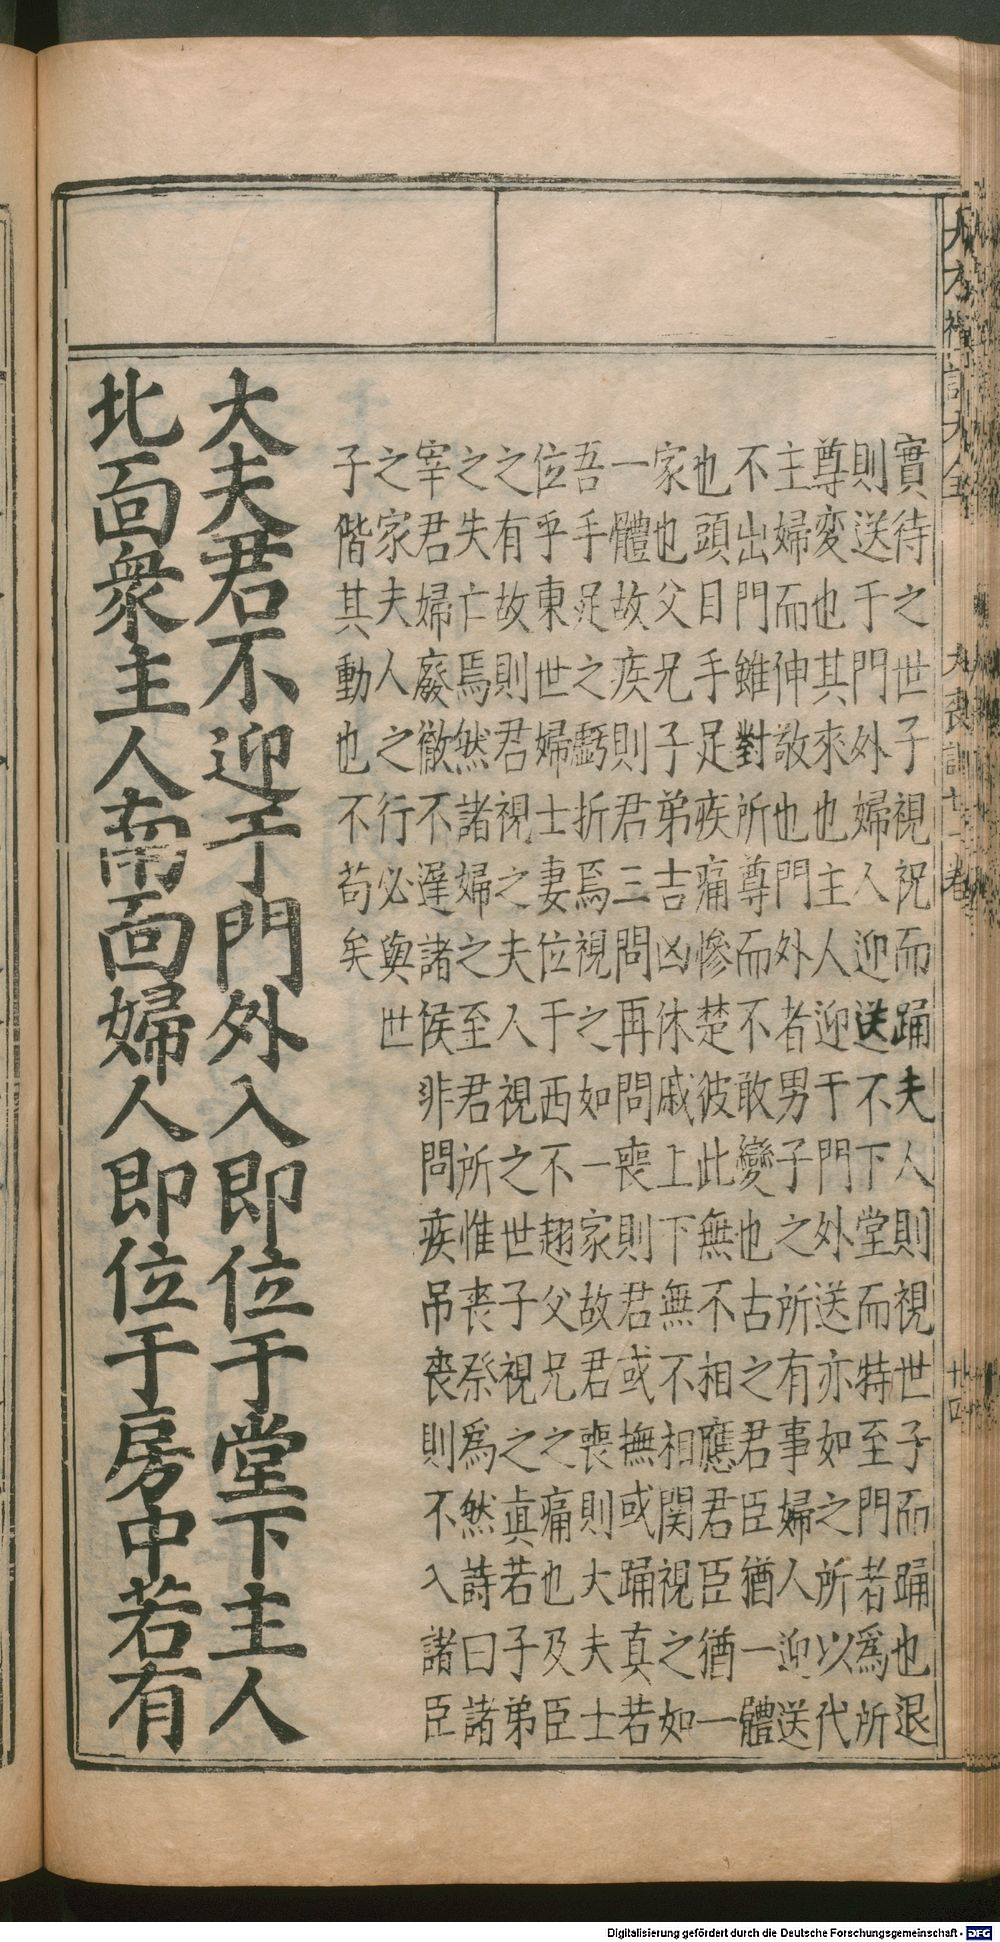 實待之世子視祝而踊夫人則視世子而踊也退
則送于門外婦人迎送不下堂而特至門者爲所
尊変也其來也主人迎于門外送亦如之所以代
主婦而伸敬也門外者男子之所有事婦人迎送
不出門雖對所尊而不敢變也古之君臣猶一體
也頭目手足疾痛慘楚彼此無不相應君臣猶一
家也父兄子弟吉凶休戚上下無不相関視之如
一體故疾則君三問再問喪則君或撫或踊真若
吾手足之虧折焉視之如一家故君喪則大夫士
位乎東世婦士妻位于西不啻父兄之痛也及臣
之有故則君視之夫人視之世子視之眞若子弟
之失亡焉然諸婦之至君所惟喪祭爲然詩曰諸
宰君婦廢徹不遲諸侯非問疾吊喪則不入諸臣
之家夫人之行必與世
子偕其動也不苟矣
大夫君不迎于門外入即位于堂下主人
北面衆主人南面婦人即位于房中若有
大喪記十一卷
廿四
Digitalisierung gefördert durch die Deutsche Forschungsgemeinschaft - DFG